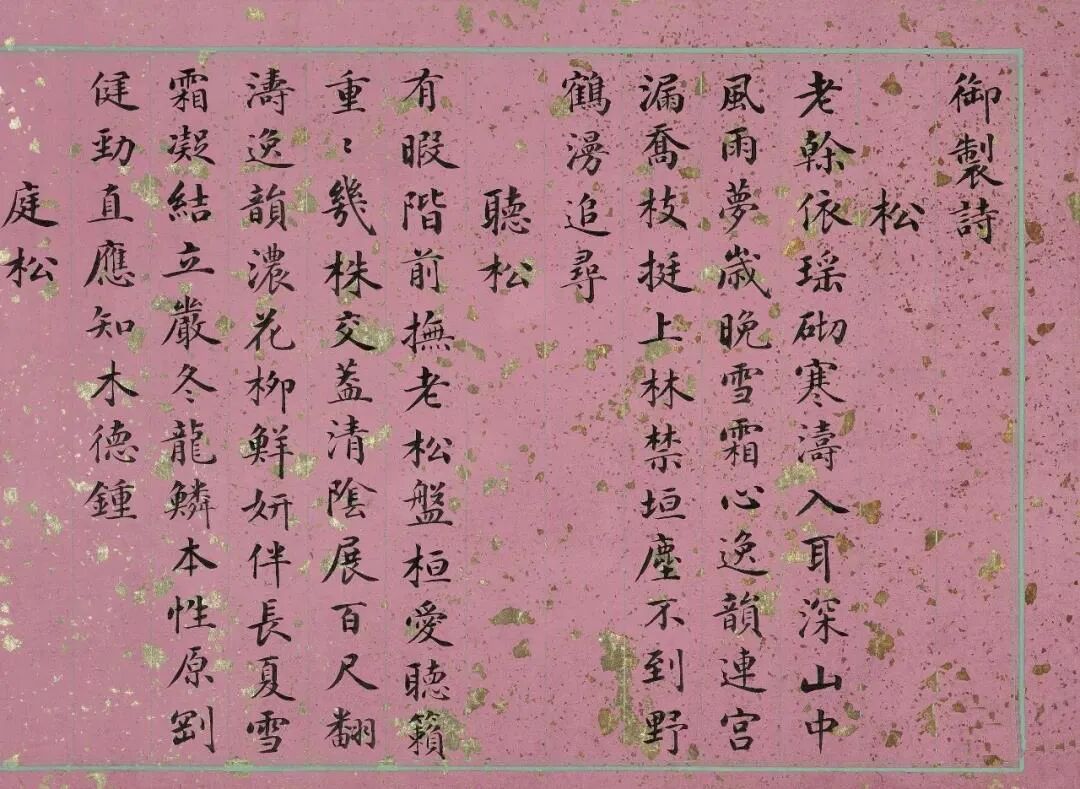 御製詩
松
老榦依瑶砌寒濤入耳深山中
風雨夢歲晚雪霜心逸韻連宫
漏喬枝挺上林禁垣塵不到野
鶴漫追尋
聽松
有暇階前撫老松盤桓愛聴籟
重〻幾株交葢清陰展百尺翻
濤逸韻濃花柳鮮妍伴長夏雪
霜凝結立嚴冬龍鱗本性原剛
健勁直應知木德鍾
庭松